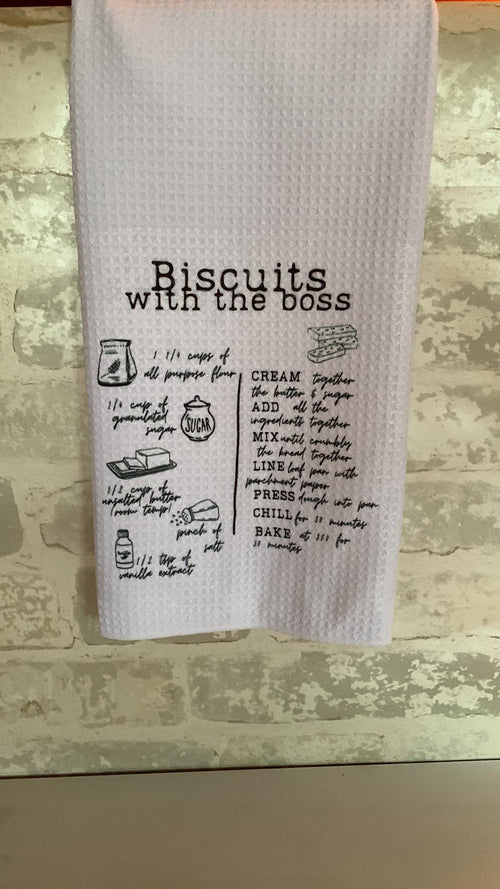 Biscuits
with the boss
1 1/4 cups of
all purpose flour
1/4 cup of
granulated
sugar
SUGAR
1/2 cup of
unsalted butter
(room temp)
pinch of
salt
1/2 tsp of
vanilla extract
CREAM together
the butter & sugar
ADD all the
ingredients together
MIX until crumbly
the knead together
LINE loaf pan with
parchment paper
PRESS dough into pan
CHILL for 30 minutes
BAKE at 350 for
30 minutes